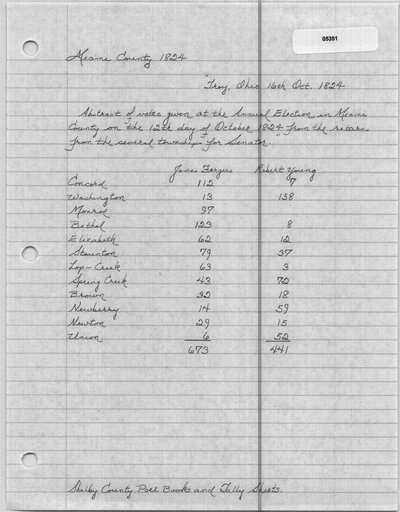 05351
Miami County 1824
"Troy, Ohio 16th Oct. 1824
Abstract of votes given at the Annual Election in Miami
County on the 12th day of October 1824" from the returns
from the several townships for Senator.
James Fergus Robert Young
Concord 112 7
Washington 13 138
Monroe 97
Bethel 123 8
Elizabeth 62 12
Staunton 79 37
Lop-Creek 63 3
Spring Creek 43 72
Brown 32 18
Newberry 14 59
Newton 29 15
Union 6 52
673 441
Shelby County Poll Books and Tally Sheets.